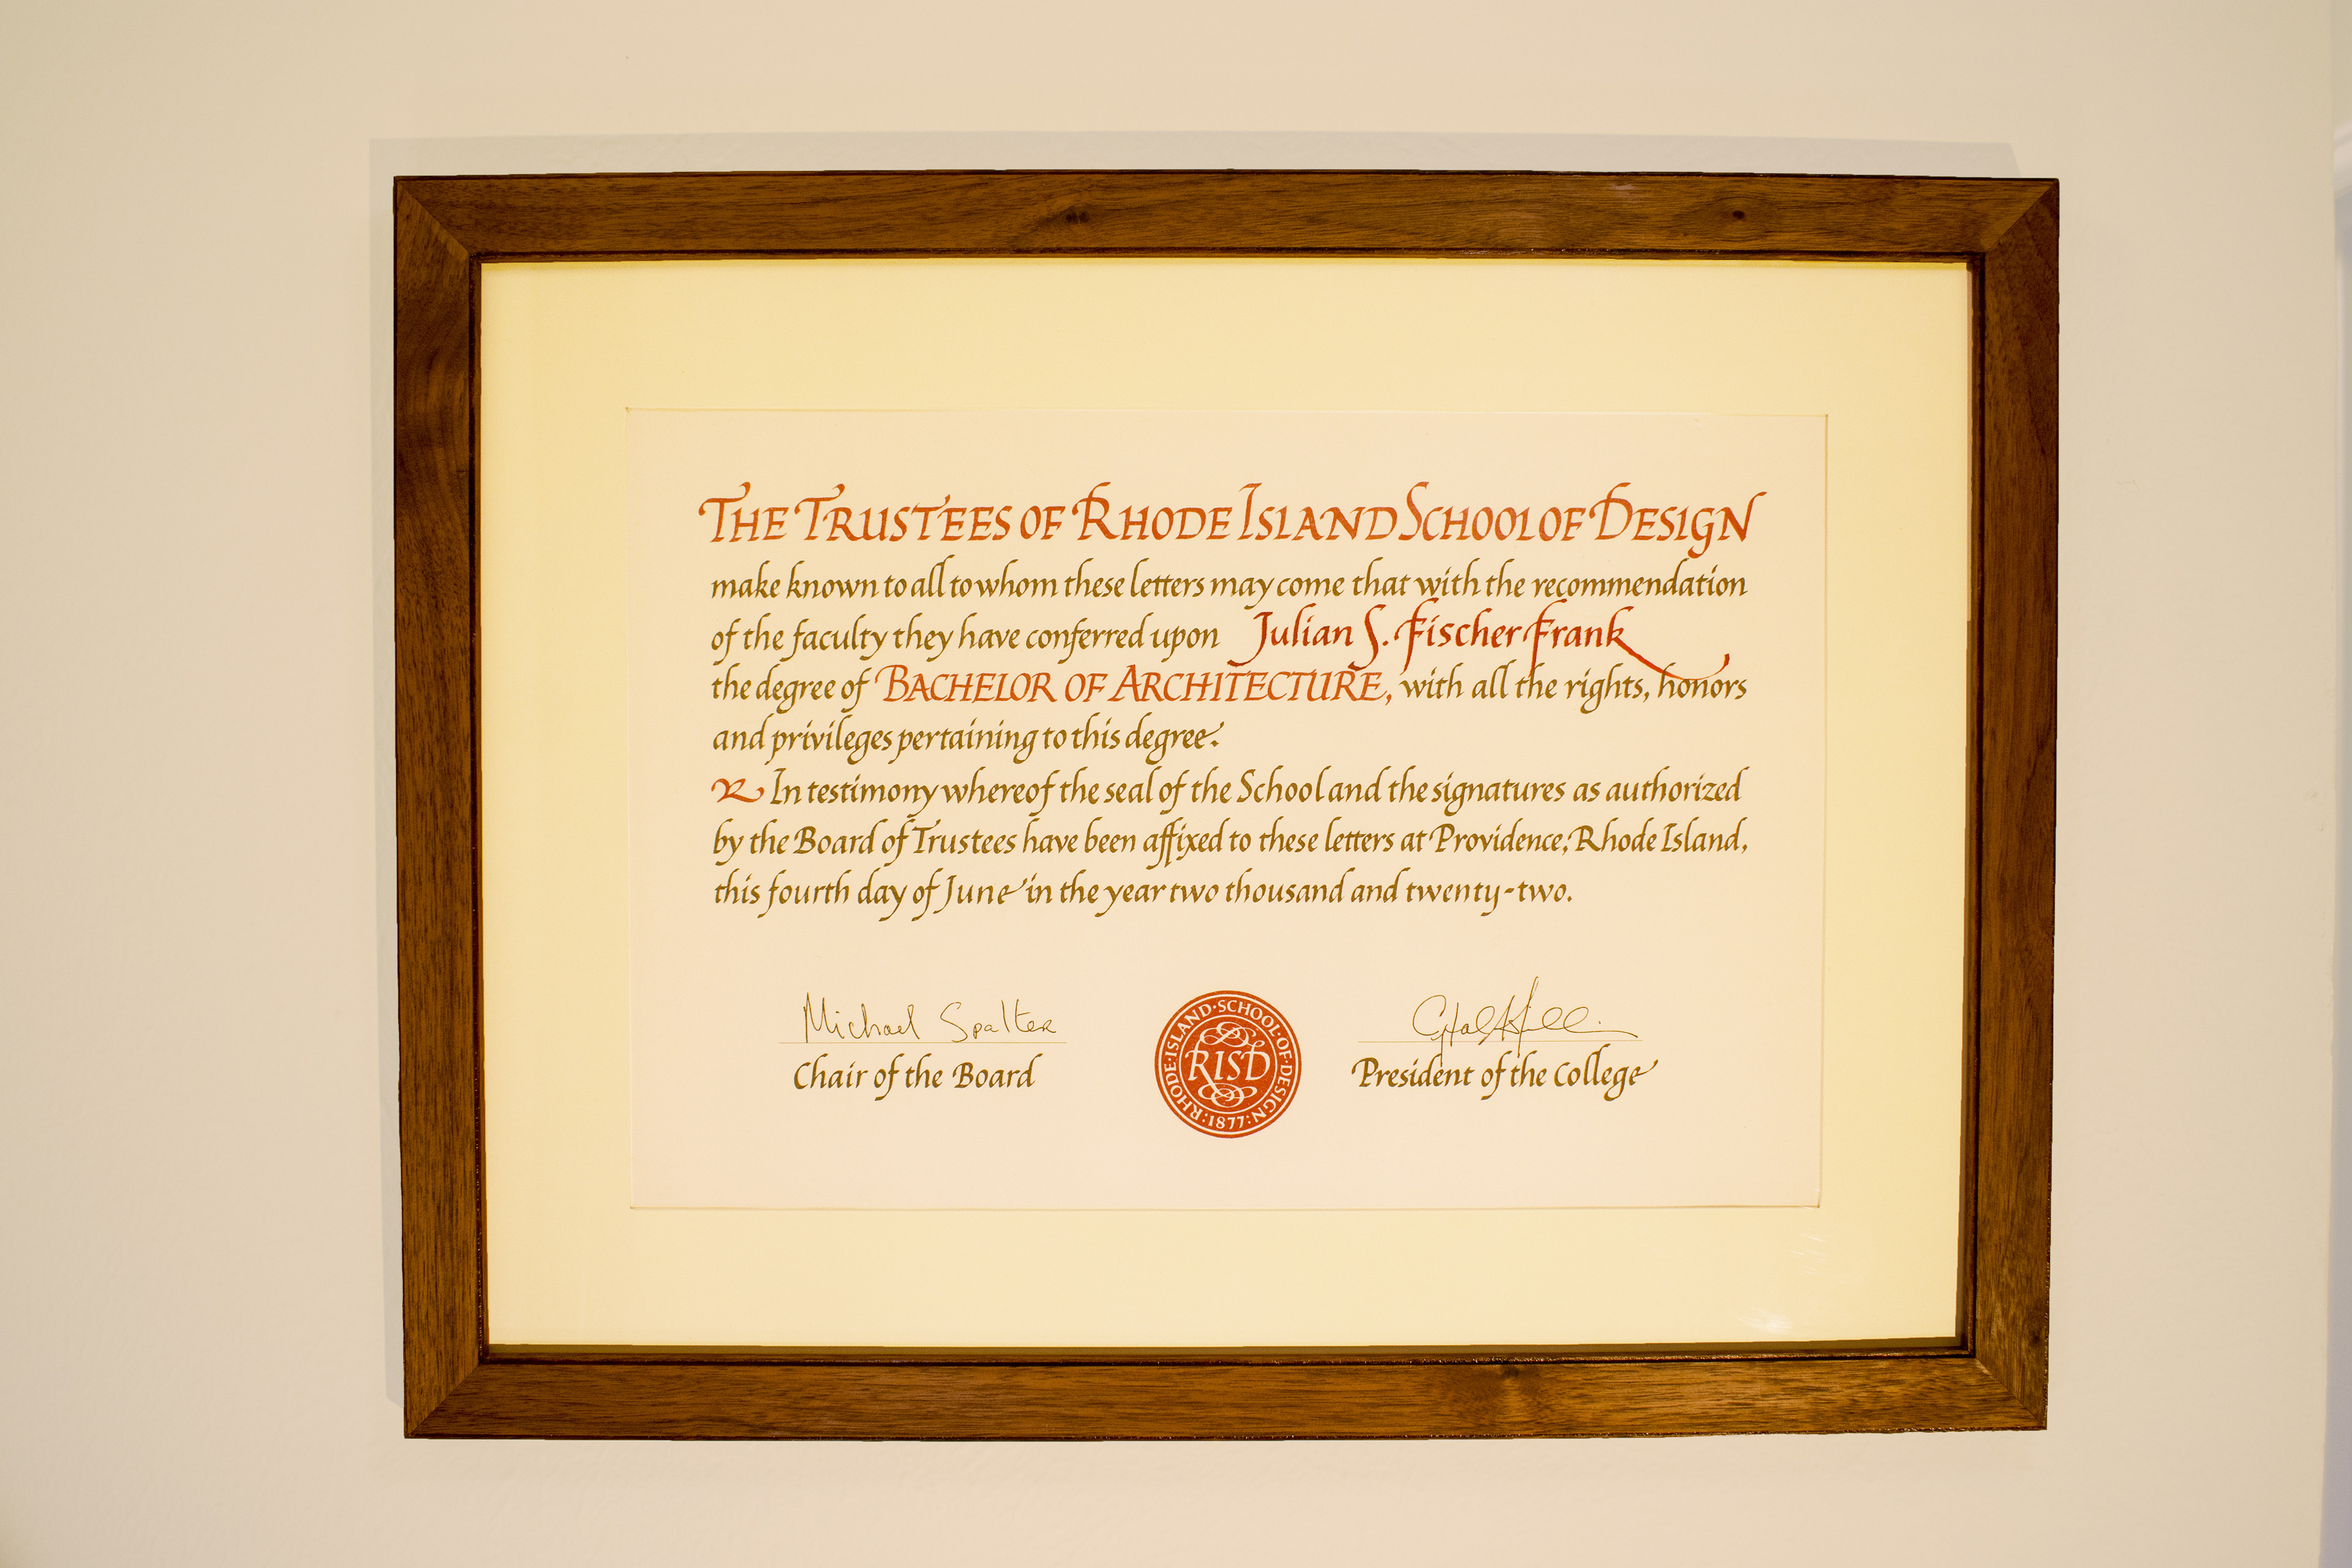 THE TRUSTEES OF RHODE ISLAND SCHOOL OF DESIGN
make known to all to whom these letters may come that with the recommendation
of the faculty they have conferred upon Julian S. Fischer Frank
the degree of BACHELOR OF ARCHITECTURE, with all the rights, honors
and privileges pertaining to this degree.
R In testimony whereof the seal of the School and the signatures as authorized
by the Board of Trustees have been affixed to these letters at Providence, Rhode Island,
this fourth day of June in the year two thousand and twenty-two.
Michael Spalter
Chair of the Board
RHODE·ISLAND·SCHOOL·OF·DESIGN
RISD
:1877:
President of the College